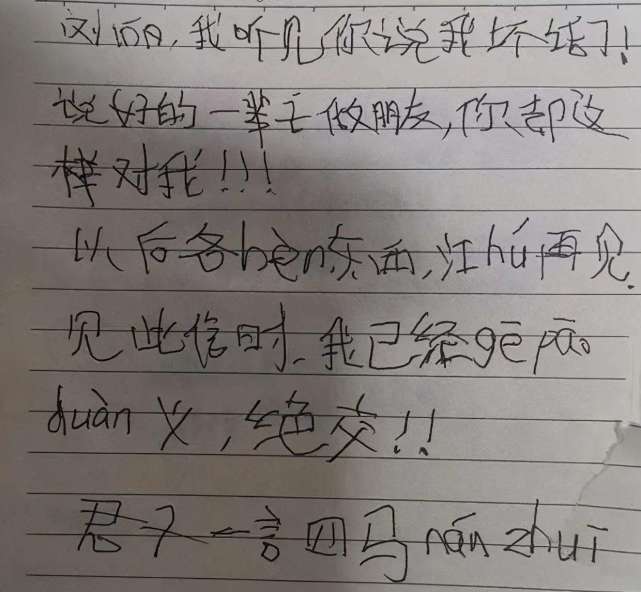 刘洒日,我听见你说我坏话了!
说好的一辈子做朋友,你却这
样对我!!!
以后各bèn东西,江hú再见.
见此信时.我已经gē pāo
duàn义,绝交!!
君子一言四马nán zhuī